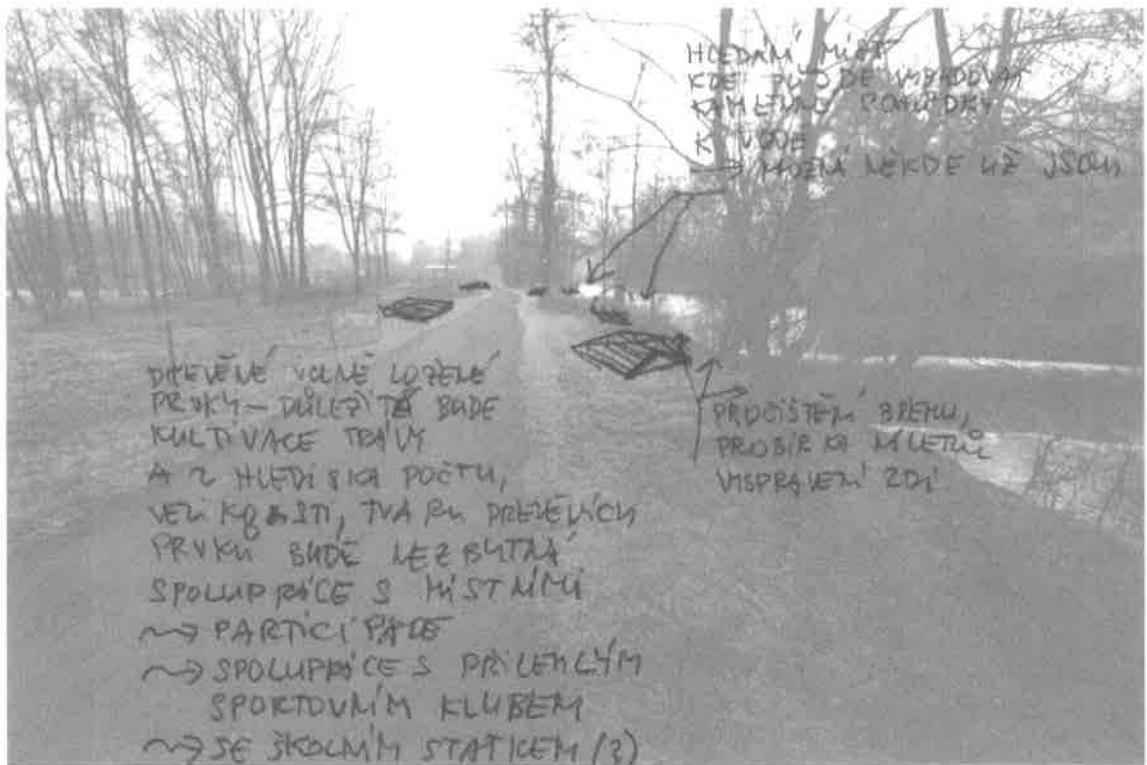 HLEDÁNÍ MÍST
KDE PŮJDE VYBUDOVAT
KAMENNÉ SCHŮDKY
K VODĚ
→ MOŽNÁ NĚKDE UŽ JSOU
DŘEVĚNÉ VOLNĚ LOŽENÉ
PRVKY – DŮLEŽITÁ BUDE
KULTIVACE TRÁVY
A Z HLEDISKA POČTU,
VELIKOSTI, TVARU DŘEVĚNÝCH
PRVKŮ BUDE NEZBYTNÁ
SPOLUPRÁCE S MÍSTNÍMI
~> PARTICIPACE
~> SPOLUPRÁCE S PŘILEHLÝM
SPORTOVNÍM KLUBEM
~> SE ŠKOLNÍM STATKEM (?)
PROČIŠTĚNÍ BŘEHU,
PROBÍRKA NÁLETŮ
VYSPRAVENÍ ZDÍ